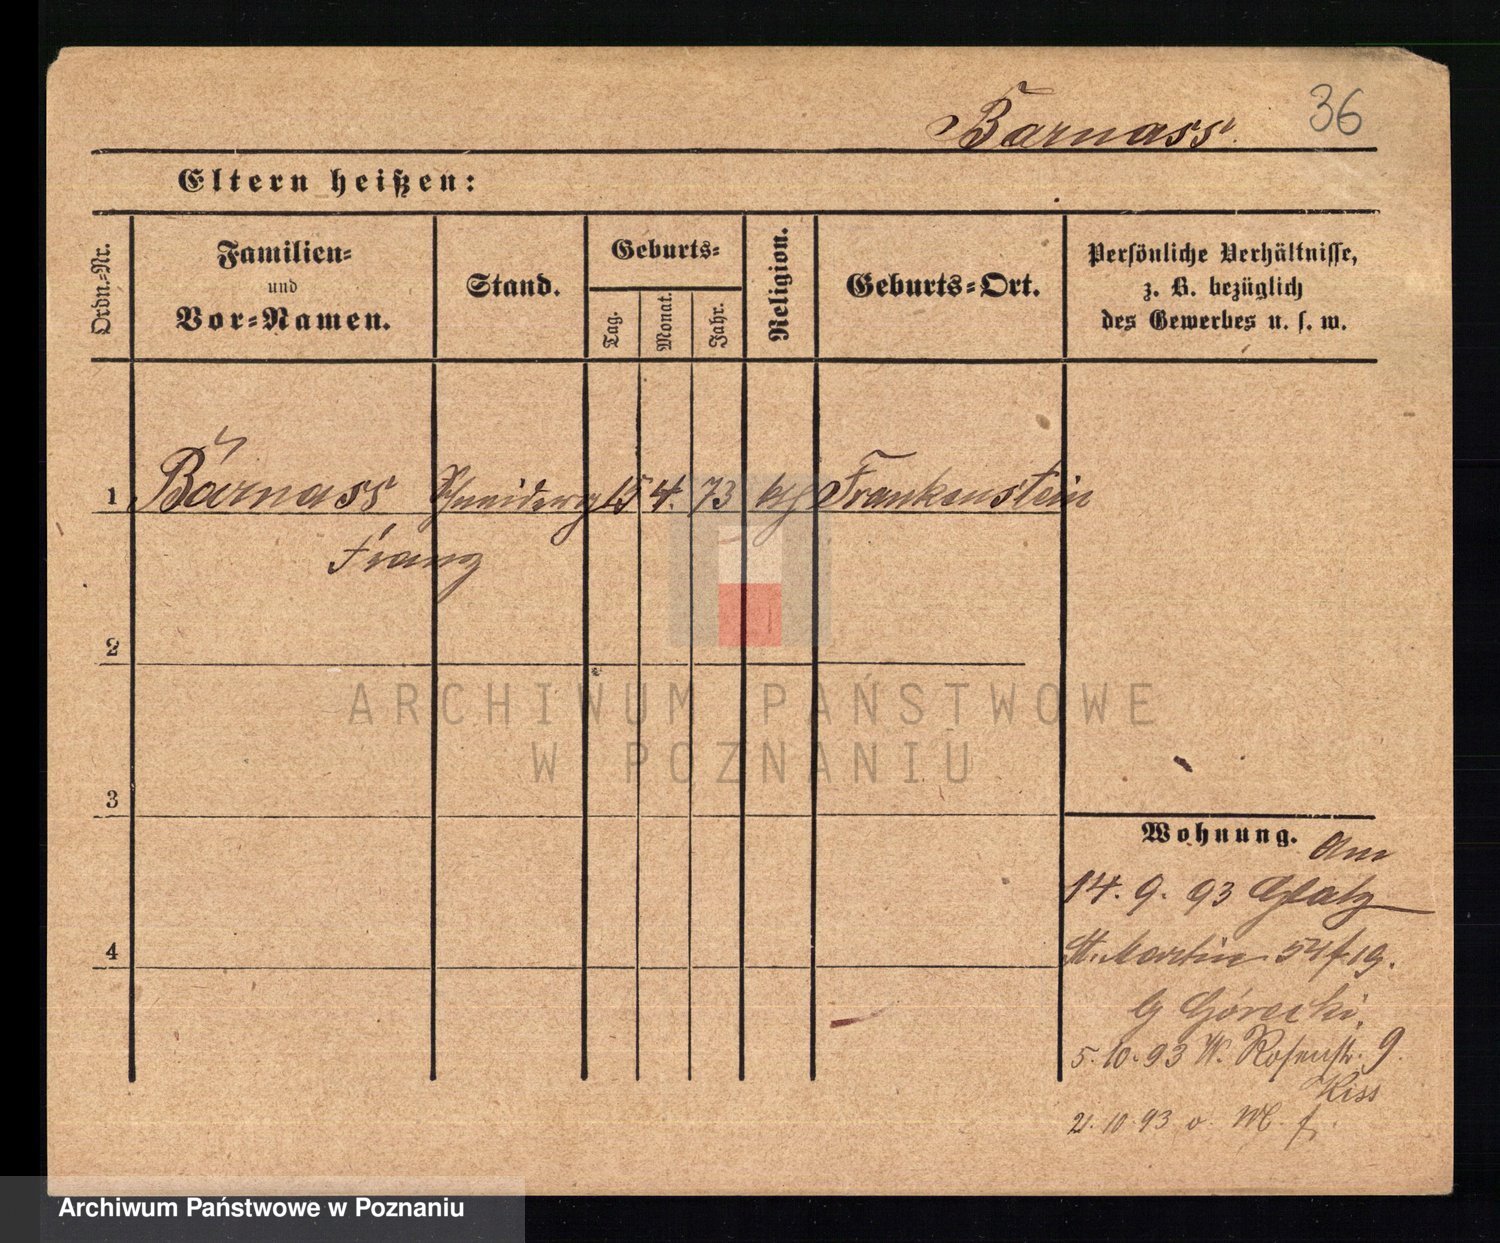 Barnass.
36
Eltern heißen:
Ordn.-Nr.
Familien-
und
Vor-Namen.
Stand.
Geburts-
Tag.
Monat.
Jahr.
Religion.
Geburts-Ort.
Persönliche Verhältnisse,
z. B. bezüglich
des Gewerbes u. s. w.
1 Barnass 15 4. 73 Frankenstein
Franz
2
ARCHIWUM PAŃSTWOWE
W POZNANIU
3
Wohnung. Am
14. 9. 93 Glatz
4
St. Martin 54 19.
Górecki
5. 10. 93 W. Rosenstr. 9.
Kiss
21. 10. 93
Archiwum Państwowe w Poznaniu